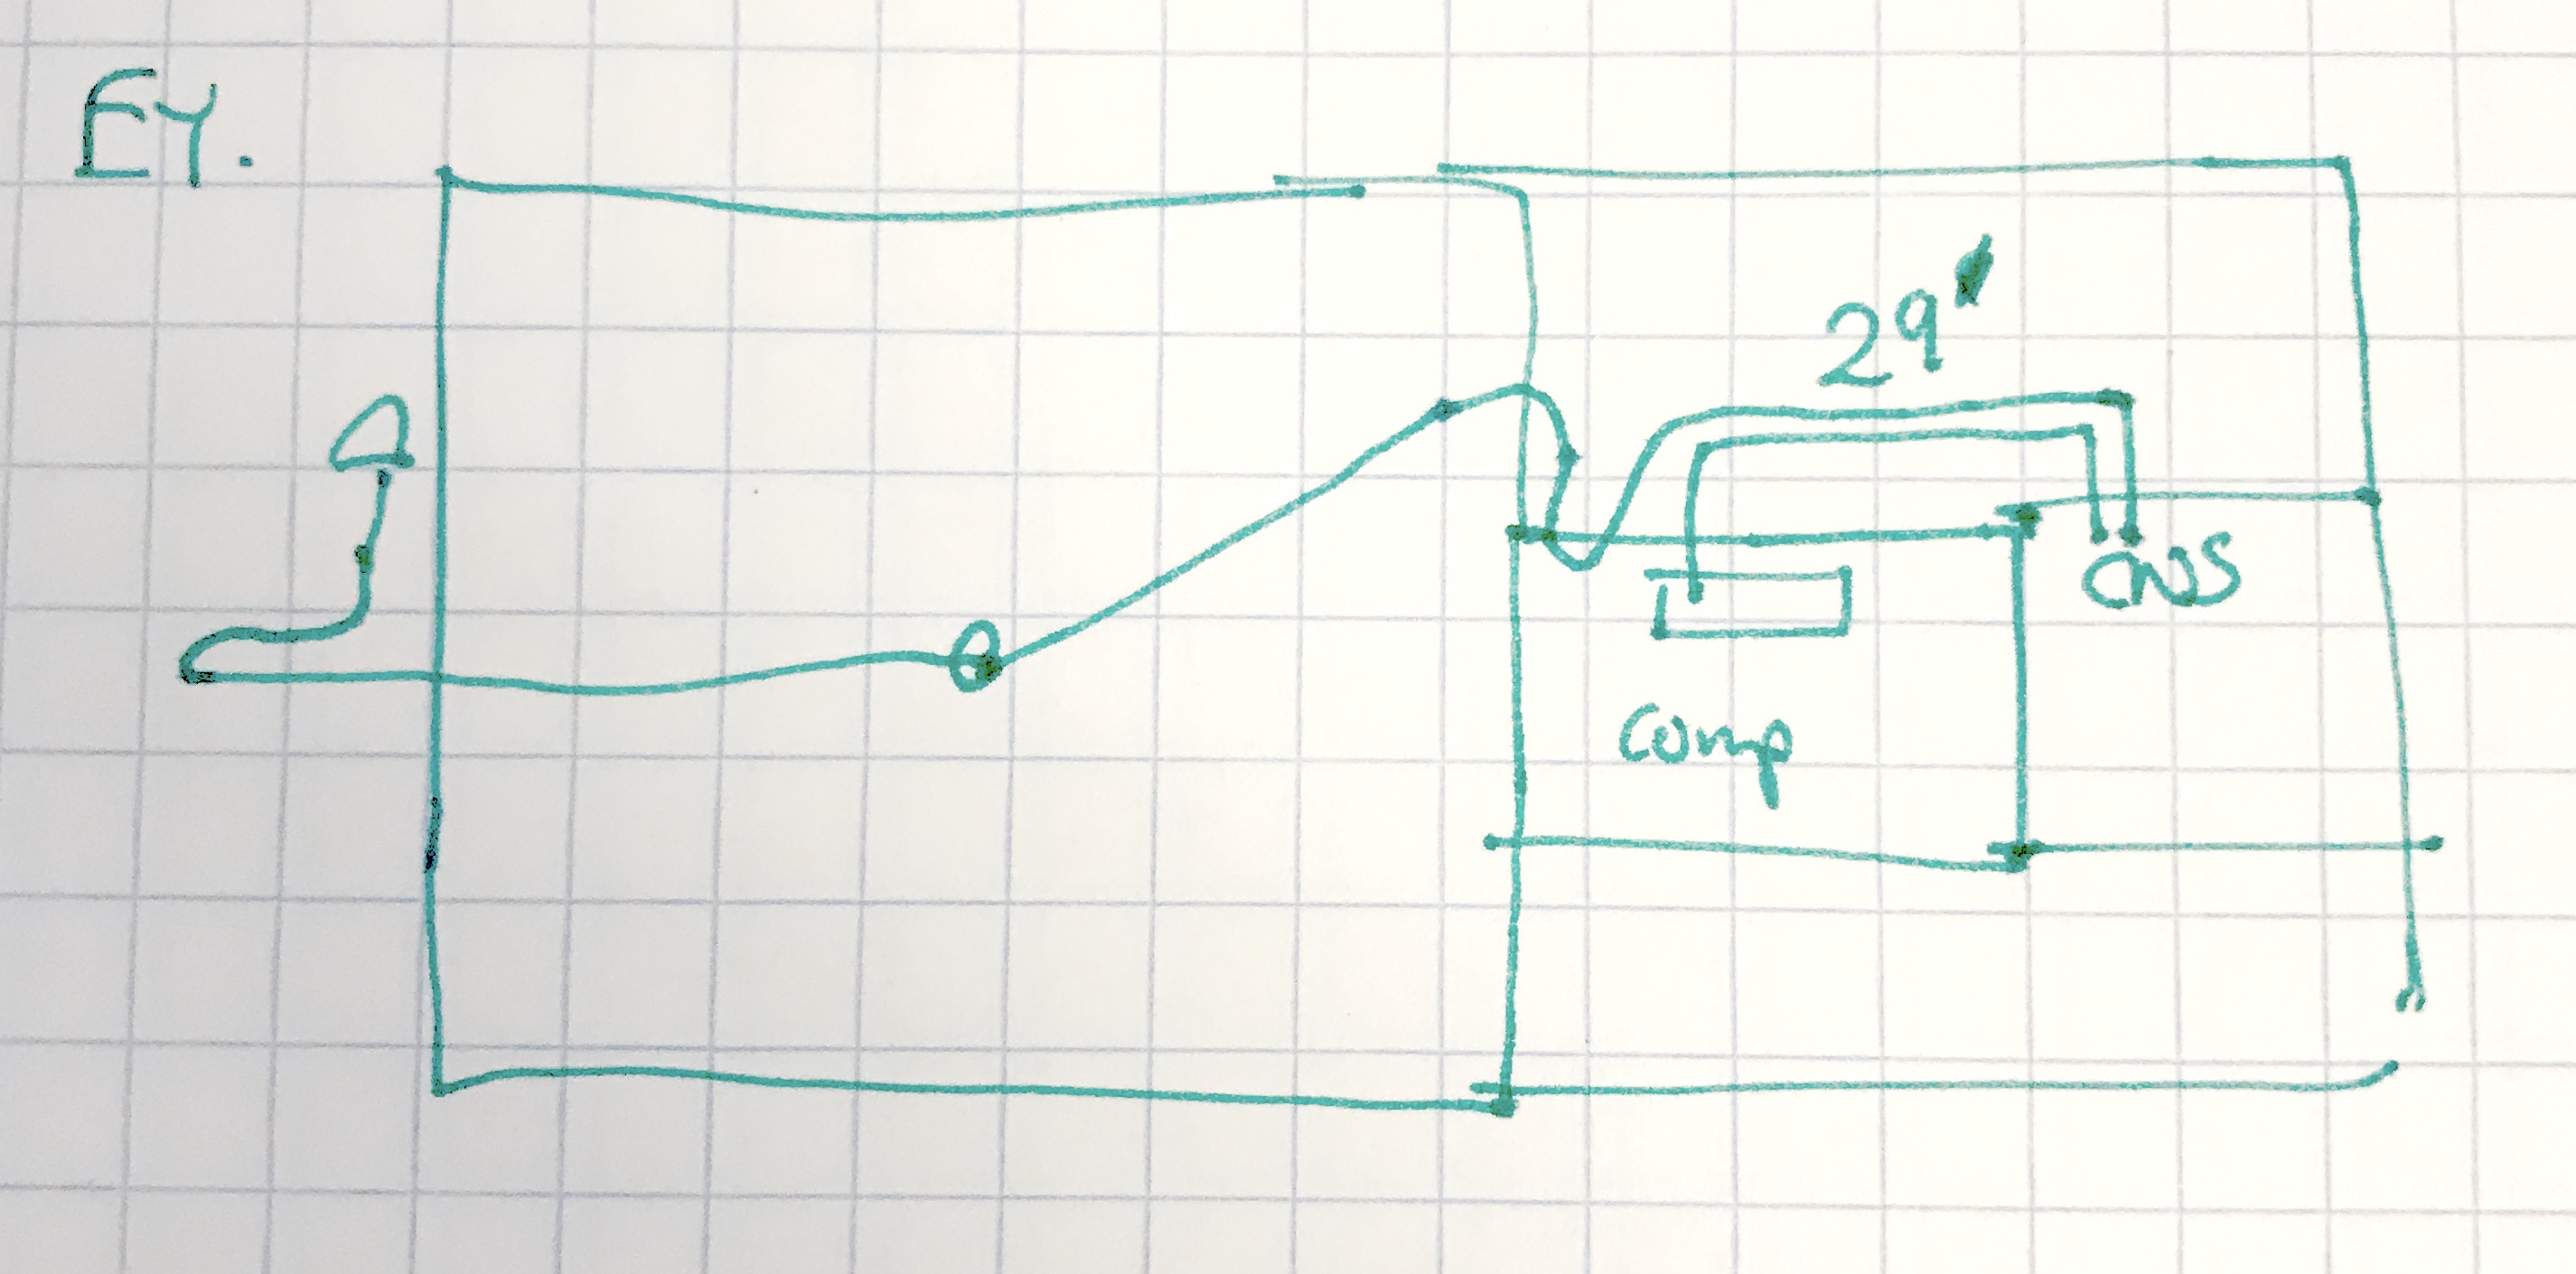 EY.
29'
CNS
Comp